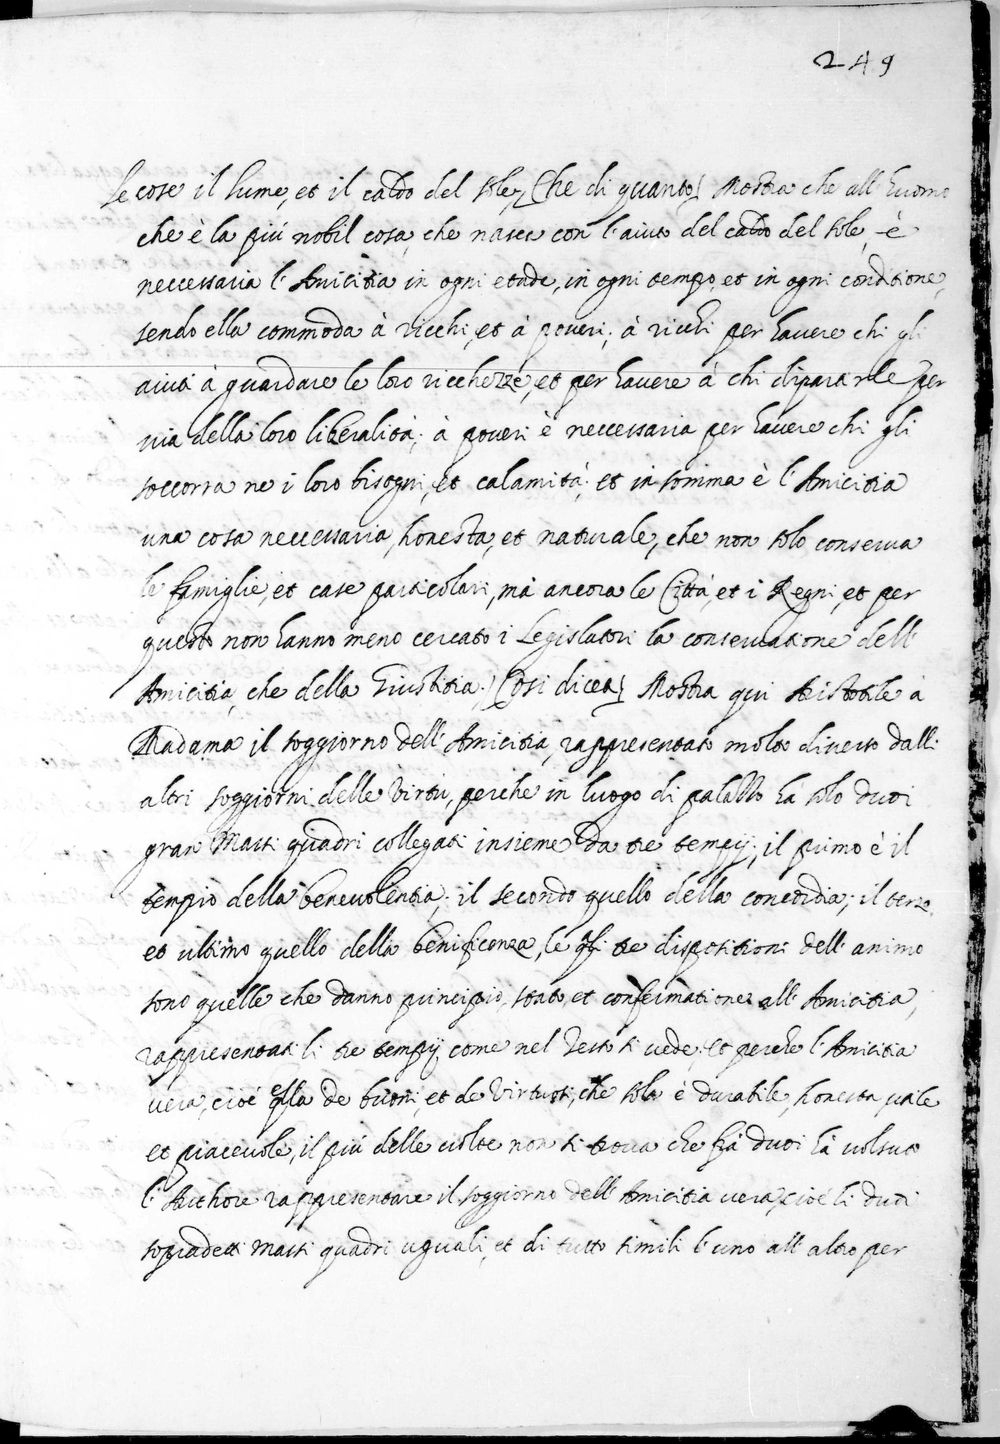 249
le cose il lume, et il caldo del sole, (Che di quanto) Mostra che all' huomo
che è la piú nobil cosa, che nasce con l' aiuto del caldo del sole, è
neccessaria l' Amicitia in ogni etade, in ogni tempo, et in ogni conditione,
sendo ella commoda à ricchi, et à poveri; à ricchi per havere chi gli
aiuti à guardare le loro ricchezze, et per havere à chi dipartirle per
via della loro liberalità; à poveri è neccessaria per havere chi gli
soccorra ne i loro bisogni, et calamità; et in somma è l' Amicitia
una cosa neccessaria, honesta, et naturale, che non solo conserva
le famiglie, et case particolari, mà ancora le Città, et i Regni, et per
questo non hanno meno cercato i Legislatori la conservatione dell'
Amicitia, che della Giustitia. (Cosi dicea) Mostra qui Aristotile à
Madama il soggiorno dell' Amicitia, rappresentato molto diverso dalli
altri soggiorni delle Virtù, perche in luogo di palazzo hà solo duoi
gran Massi quadri collegati insieme da tre tempij; il primo è il
tempio della benevolentia; il secondo quello della concordia; il terzo,
et ultimo quello della benificenza, le qli tre dispositioni dell' animo
sono quelle che danno principio, stato, et confirmatione all' Amicitia,
rappresentati li tre tempij, come nel Testo si vede; et perche l' Amicitia
vera, cioé qlla de buoni, et de Virtuosi, che sola è durabile, honesta, utile
et piacevole, il piú delle volte non si trova che frà duoi hà volsuto
l' Authore rappresentare il soggiorno dell' Amicitia vera, cioé li duoi
sopradetti massi quadri uguali, et di tutto simili l' uno all' altro per